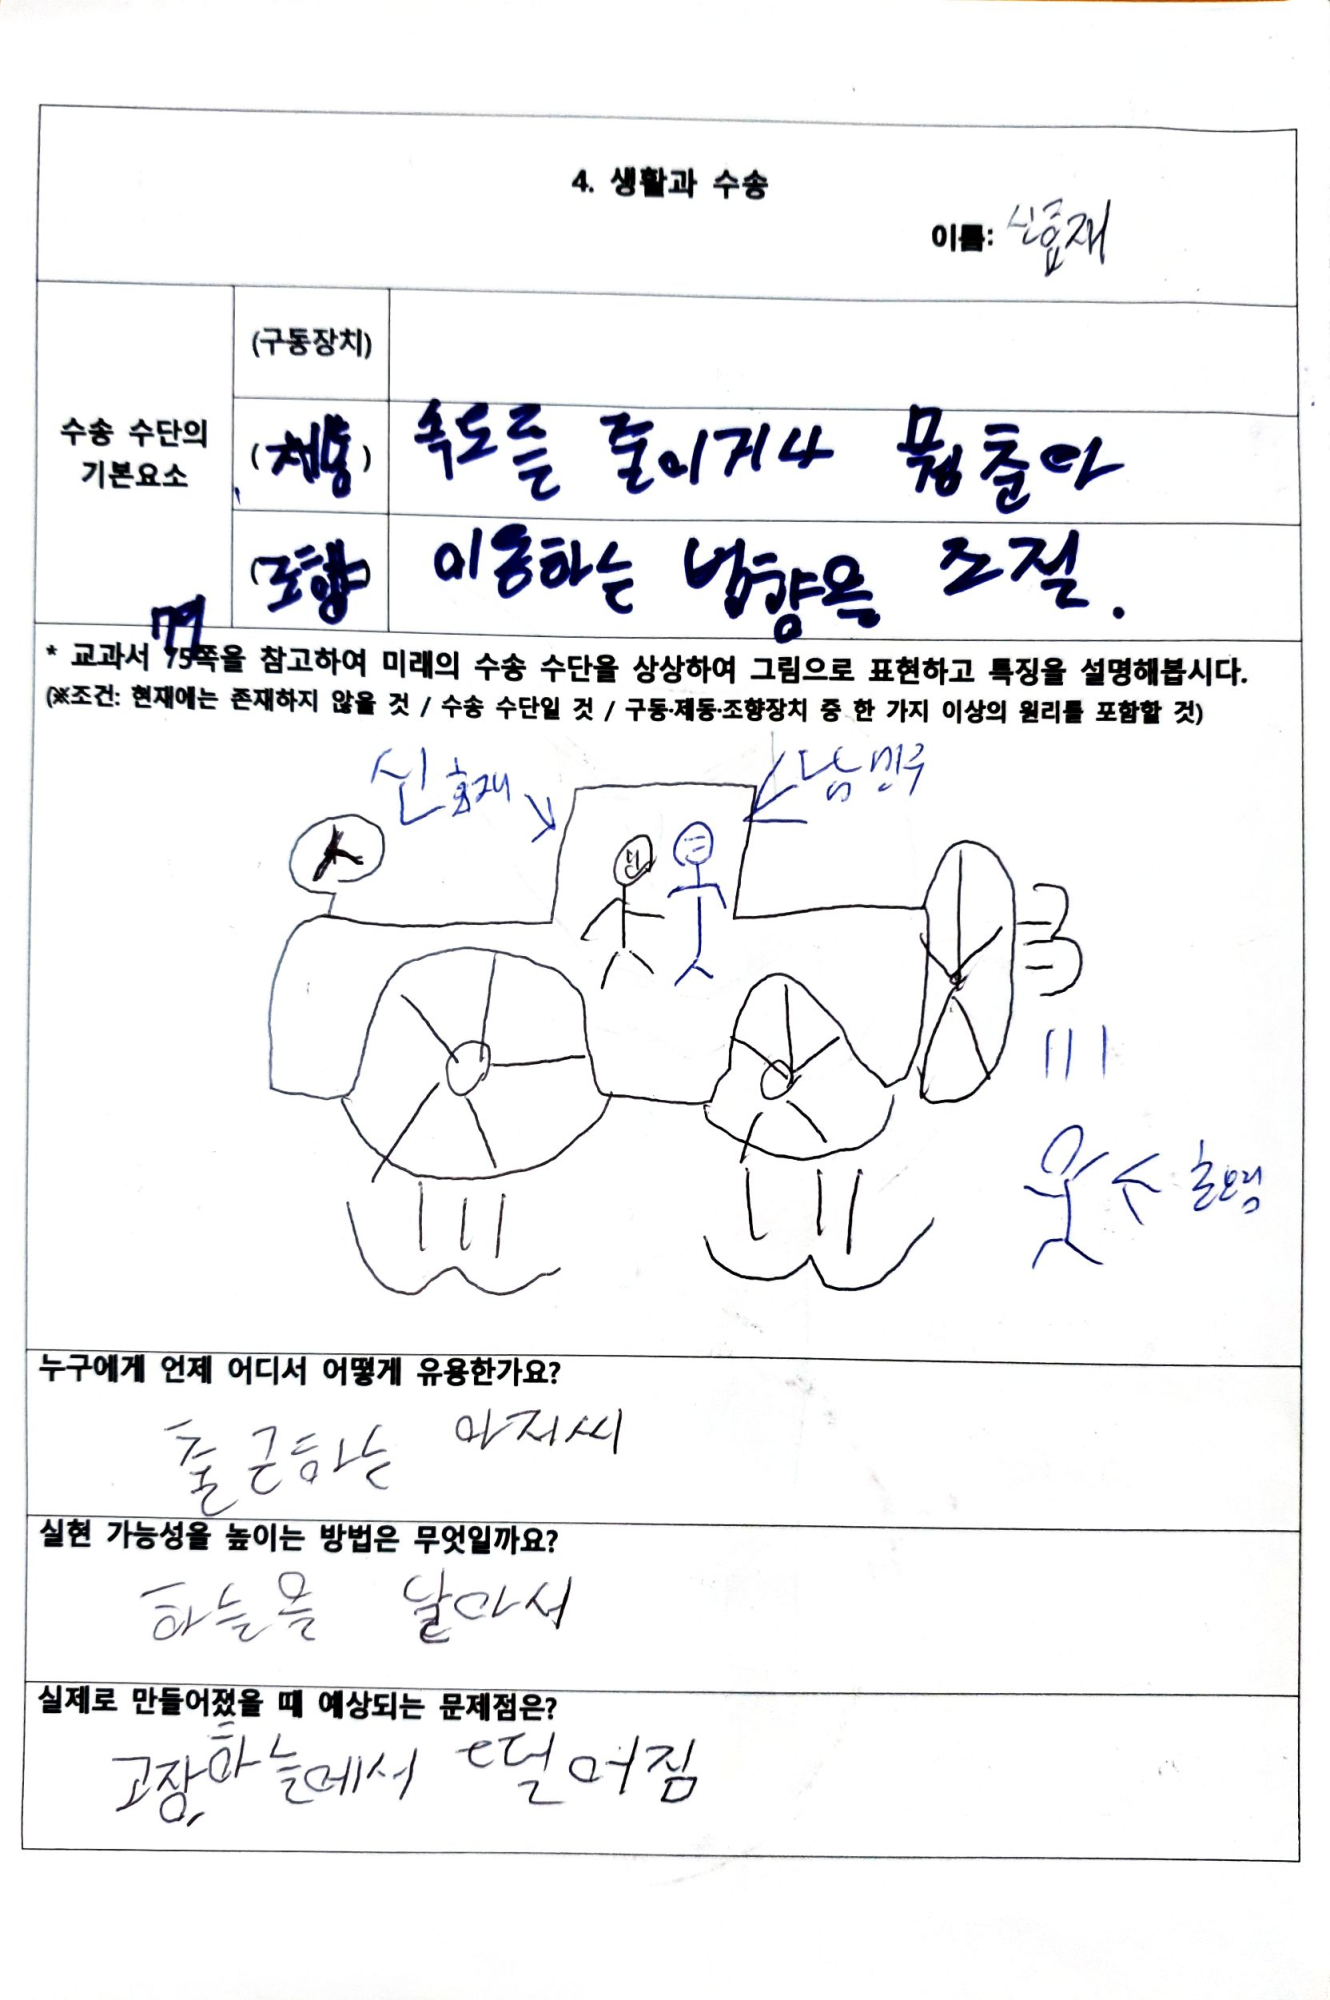 4. 생활과 수송
이름: 신효재
(구동장치)
수송 수단의
기본요소
(체동) 속도를 줄이거나 뭠춘다
(조향) 이용하는 방향을 조절.
79
* 교과서 75쪽을 참고하여 미래의 수송 수단을 상상하여 그림으로 표현하고 특징을 설명해봅시다.
(※조건: 현재에는 존재하지 않을 것 / 수송 수단일 것 / 구동·제동·조향장치 중 한 가지 이상의 원리를 포함할 것)
신효재
남민우
누구에게 언제 어디서 어떻게 유용한가요?
출근하는 아저씨
실현 가능성을 높이는 방법은 무엇일까요?
하늘을 날아서
실제로 만들어졌을 때 예상되는 문제점은?
고장, 하늘에서 떨어짐